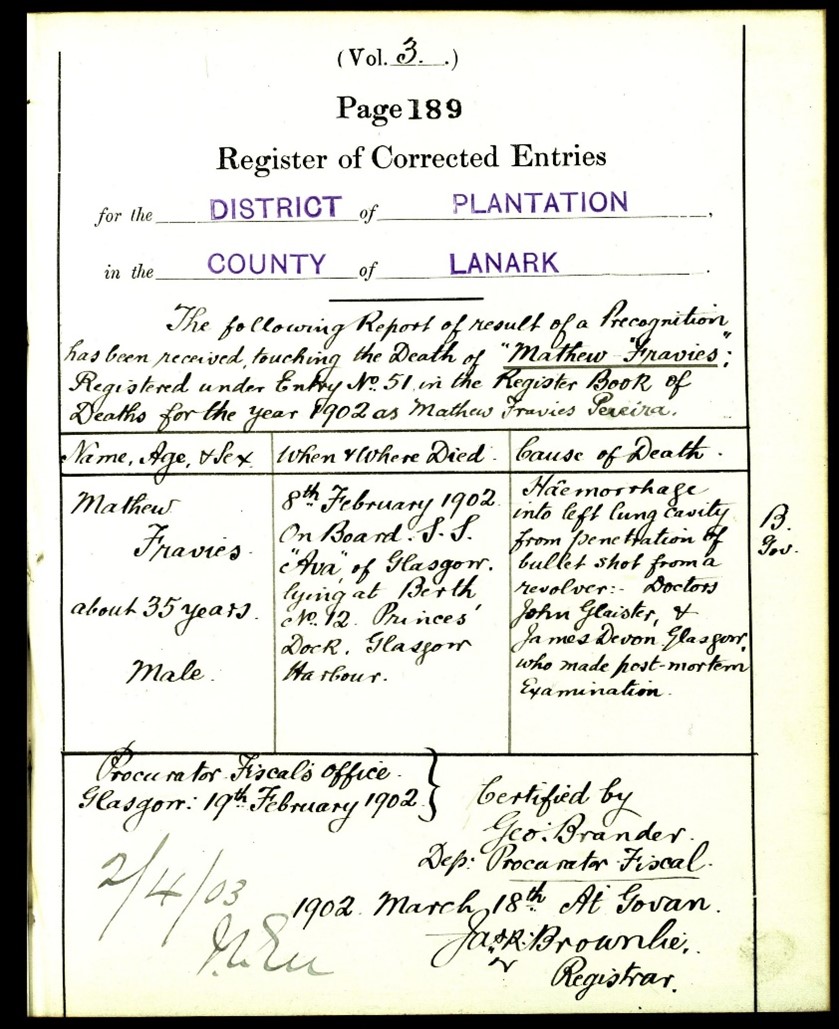 (Vol. 3.)
Page 189
Register of Corrected Entries
for the DISTRICT of PLANTATION,
in the COUNTY of LANARK.
The following Report of result of a Precognition
has been received, touching the Death of "Mathew "Fravies";
Registered under Entry No. 51, in the Register Book of
Deaths for the year 1902 as Mathew Fravies Pereira.
Name, Age, & Sex
When & Where Died.
Cause of Death.
Mathew
Fravies.
about 35 years.
Male.
8th February 1902.
On Board. S.S.
"Ava", of Glasgow.
lying at Berth
No. 12. Princes'
Dock, Glasgow
Harbour.
Haemorrhage
into left lung cavity
from penetration of
bullet shot from a
revolver:- Doctors
John Glaister, &
James Devon, Glasgow,
who made post-mortem
Examination.
B.
Gov.
Procurator Fiscal's Office.
Glasgow: 19th February 1902.
Certified by
Geo: Brander.
Dep: Procurator Fiscal.
2/4/03
1902. March, 18th At Govan.
Jas R. Brownlie,
Registrar.